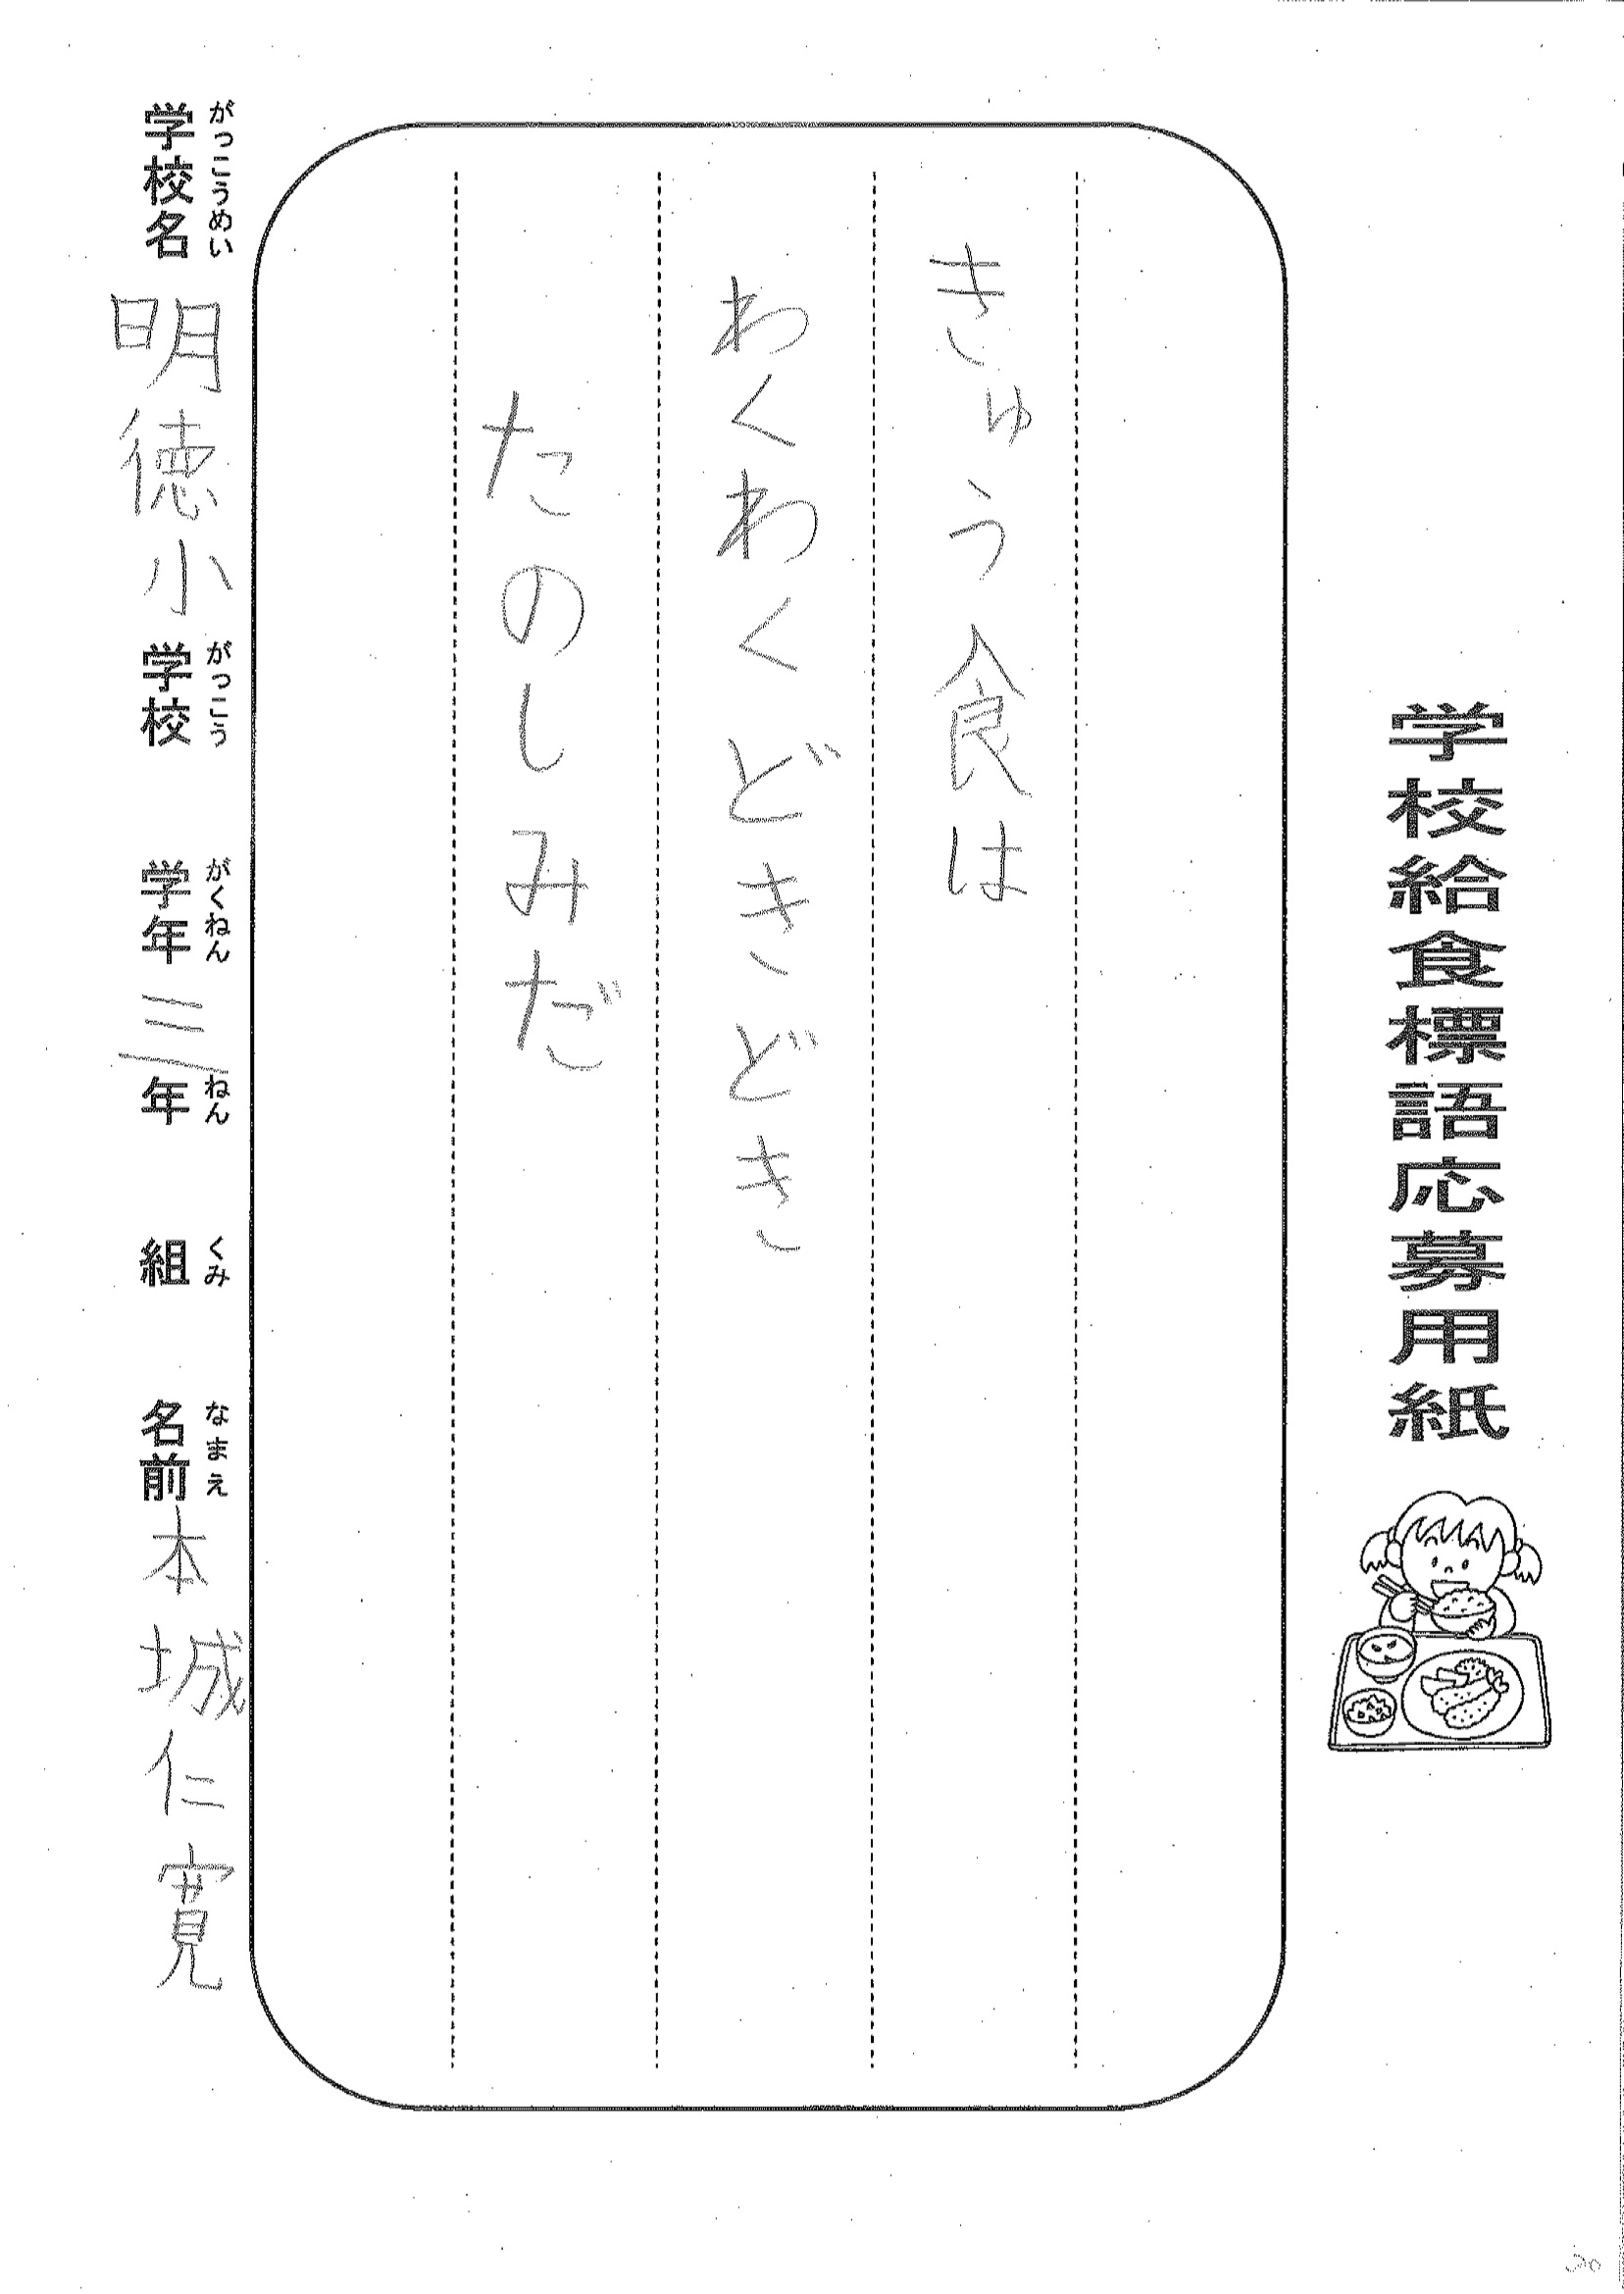 学校給食標語応募用紙
きゅう食は
わくわくどきどき
たのしみだ
がっこうめい がっこう がくねん ねん くみ なまえ
学校名 明徳小 学校 学年 三年 組 名前 本城仁寛